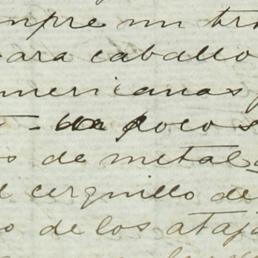 mpre un tra
ara caballo
mericanas
poco s
os de metal
l cerquillo de
o de los ataja